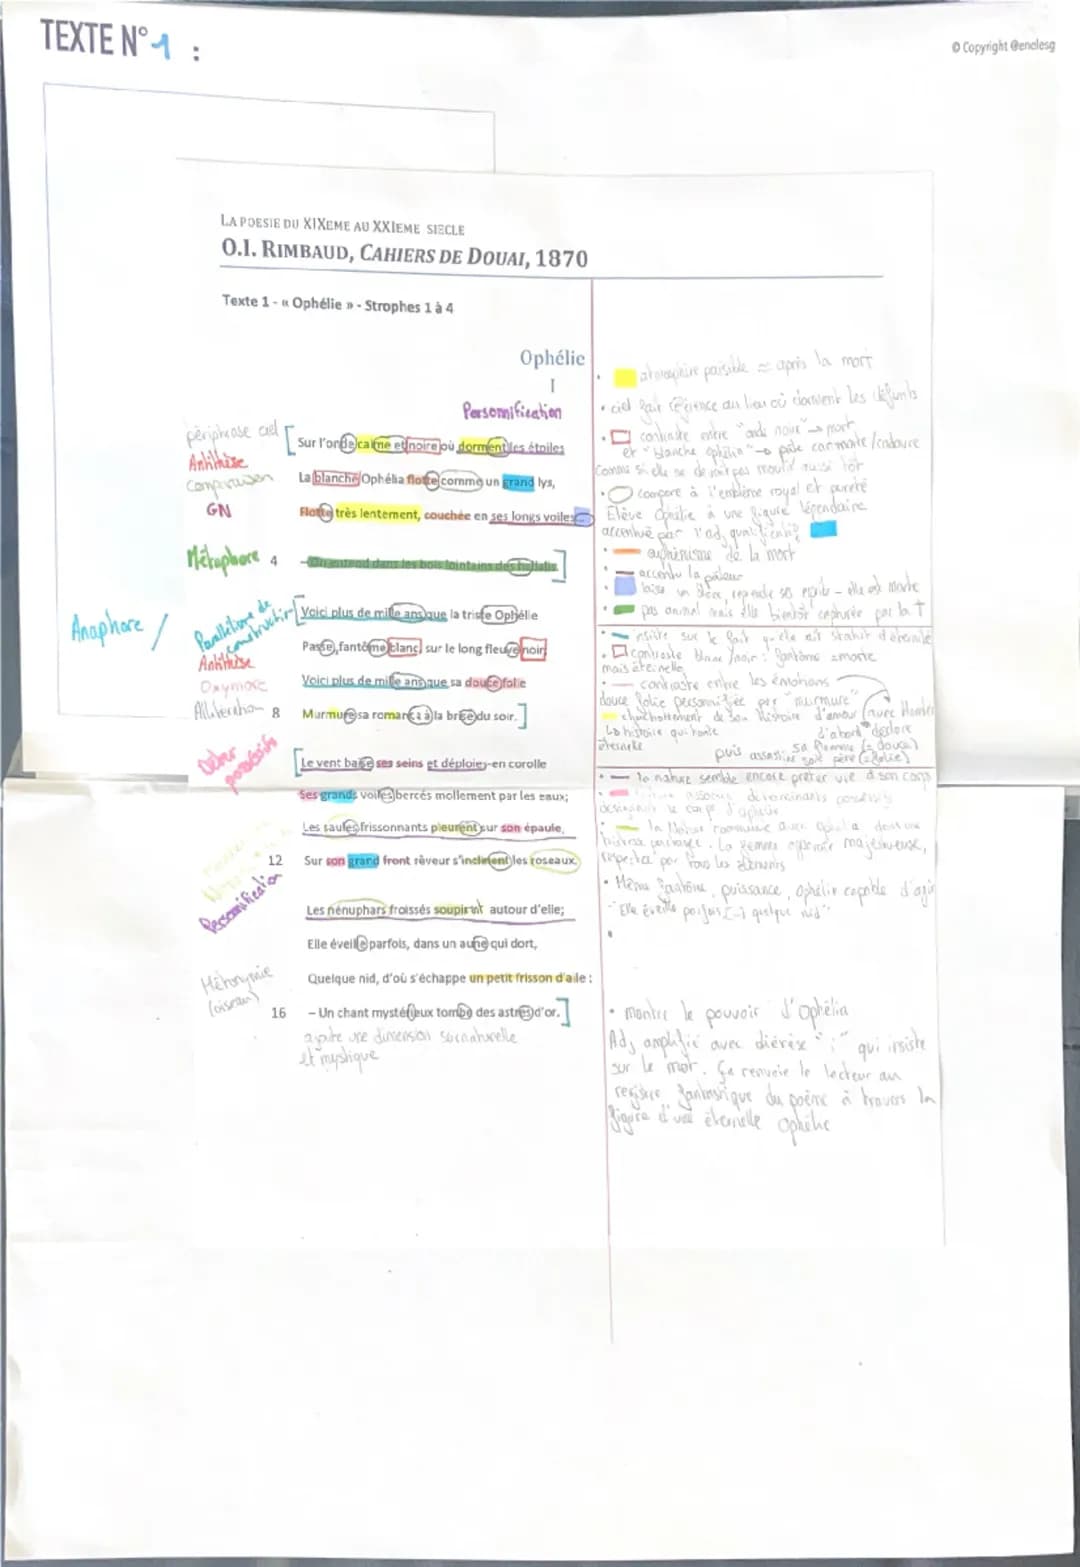 TEXTE N°1 :
© Copyright @enclesg
LA POESIE DU XIXEME AU XXIEME SIECLE
O.I. RIMBAUD, CAHIERS DE DOUAI, 1870
Texte 1 - « Ophélie » - Strophes 1 à 4
Ophélie
I
Personification
périphrase ciel
Antithèse
Comparaison
GN
Métaphore
Anaphore /
Parallélisme de construction
Antithèse
Oxymore
Allitération
Déter possessifs
Personnification
Métonymie
(oiseau)
Sur l'onde calme et noire où dorment les étoiles
La blanche Ophélia flotte comme un grand lys,
Flotte très lentement, couchée en ses longs voiles...
4 – On entend dans les bois lointains des hallalis.
Voici plus de mille ans que la triste Ophélie
Passe, fantôme blanc, sur le long fleuve noir;
Voici plus de mille ans que sa douce folie
8 Murmure sa romance à la brise du soir.
Le vent baise ses seins et déploie en corolle
Ses grands voiles bercés mollement par les eaux;
Les saules frissonnants pleurent sur son épaule,
12 Sur son grand front rêveur s'inclinent les roseaux.
Les nénuphars froissés soupirent autour d'elle;
Elle éveille parfois, dans un aune qui dort,
Quelque nid, d'où s'échappe un petit frisson d'aile :
16 – Un chant mystérieux tombe des astres d'or.
ajoute une dimension surnaturelle
et mystique
atmosphère paisible = après la mort
ciel fait référence au lieu où dorment les défunts
contraste entre "onde noire" → mort
et "blanche Ophélia" → pâle carmate/cadavre
comme si elle ne devait pas mourir aussi tôt
compare à l'emblème royal et pureté
Elève Ophélie à une figure légendaire
accentué par l'adj qualificatif
euphémisme de la mort
accentu la pâleur
laisse un
elle est morte
pas animal mais elle bientôt capturée par la †
insiste sur le fait qu'elle ait statut d'éternité
contraste blanc/noir : fantôme = morte
mais éternelle
contraste entre les émotions
douce folie personnifiée par "murmure"
chuchotement de son histoire d'amour (avec Hamlet
La histoire qui hante
d'abord déclare
éternité
sa flamme (= douce)
puis assassine son père (= folie)
la nature semble encore prêter vie à son corps
déterminants possessifs
le corps d'Ophélie
la Nature communie avec Ophélia dont une
histoire partagée. La femme apparaît majestueuse,
respectée par tous les éléments
Même fantôme, puissance, Ophélie capable d'agir
"Elle éveille parfois [...] quelque nid"
montre le pouvoir d'Ophélia
Adj amplifié avec diérèse "i" qui insiste
sur le mot. Ça renvoie le lecteur au
registre fantastique du poème à travers la
figure d'une éternelle Ophélie